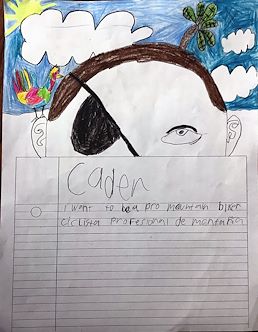 Caden
I want to be a pro mountain biker
ciclista profesional de montaña